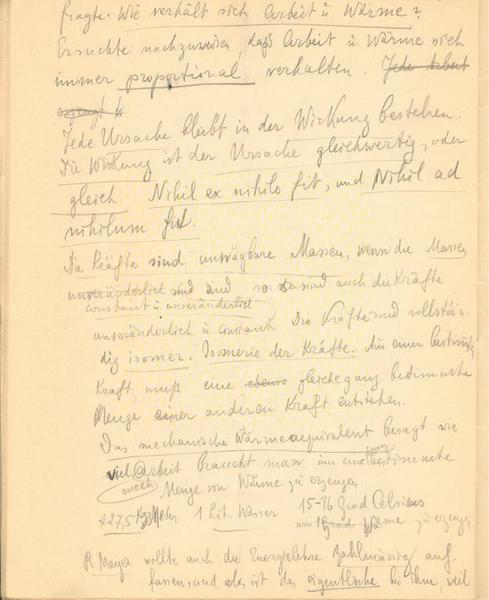 fragte: Wie verhält sich Arbeit u. Wärme?
Er suchte nachzuweisen, daß Arbeit u. Wärme sich
immer proportional verhalten. Jede Arbeit
erzeugt
Jede Ursache bleibt in der Wirkung bestehen.
Die Wirkung ist der Ursache gleichwertig, oder
gleich Nihil ex nihilo fit, und Nihil ad
nihilum fit.
Die Kräfte sind unwägbare Massen, wenn die Massen
unveränderlich sind und so sind auch die Kräfte
constant u. unveränderlich
unveränderlich u. constant. Die Kräfte sind vollstän-
dig isomer. Isomerie der Kräfte. Aus einer bestimmten
Kraft, muß eine ebenso gleiche ganz bestimmte
Menge einer anderen Kraft entstehen.
Das mechanische Wärmeaequivalent besagt wie
viel Arbeit braucht man um eine bestimmte
mech. Menge von Wärme zu erzeugen,
427,5 Kg Mehr. 1 Lit. Wasser 15-16 Grad Celsius
um 1 Grad Wärme zu erzeugen
R. Mayer wollte auch die Energielehre zahlmässig auf-
fassen, und das ist das eigentliche bei ihm, weil